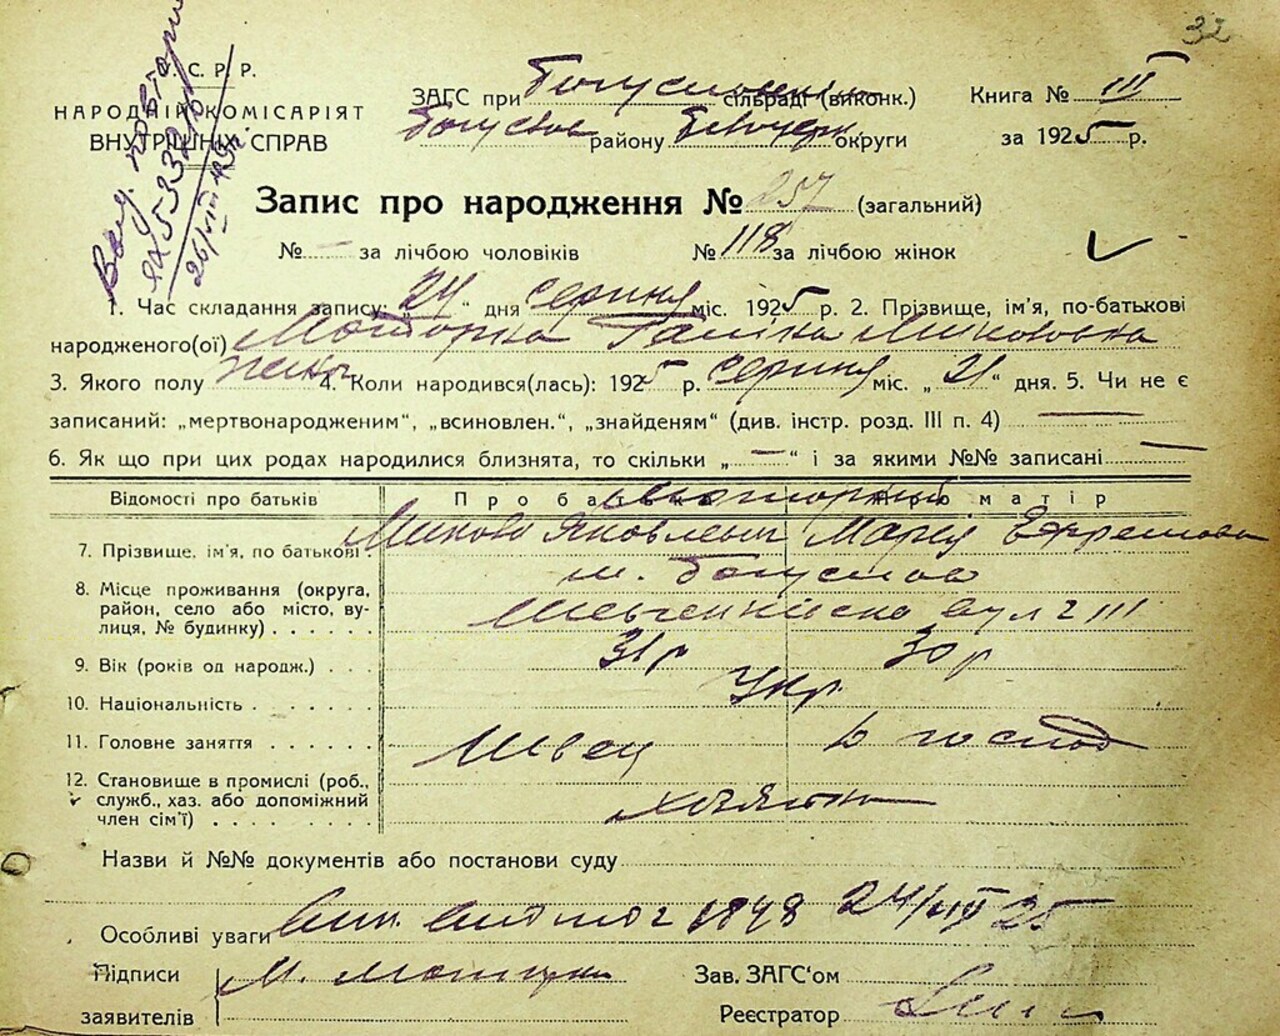 32
У. С. Р. Р.
НАРОДНІЙ КОМІСАРІЯТ
ВНУТРІШНІХ СПРАВ
ЗАГС при Богуславській сільраді (виконк.)
Книга № III
Богуслав району Білоцерк. округи
за 1925 р.
Запис про народження № 257 (загальний)
№ — за лічбою чоловіків № 118 за лічбою жінок
1. Час складання запису: „24“ дня серпня міс. 1925 р. 2. Прізвище, ім'я, по-батькові
народженого(ої) Моторна Галина Миколовна
3. Якого полу жіноч. 4. Коли народився(лась): 1925 р. серпня міс. „21“ дня. 5. Чи не є
записаний: „мертвонародженим“, „всиновлен.“, „знайденям“ (див. інстр. розд. III п. 4) —
6. Як що при цих родах народилися близнята, то скільки „—“ і за якими №№ записані —
Відомості про батьків Про батька Про матір
Моторний
7. Прізвище, ім'я, по батькові Микола Яковлевич Марія Ефремовна
м. Богуслав
8. Місце проживання (округа, район, село або місто, ву-
лиця, № будинку) Шевченківська вул ч III
9. Вік (років од народж.) 31 р 30 р
10. Національність Укр.
11. Головне заняття Швец в господ
12. Становище в промислі (роб.,
служб., хаз. або допоміжний
член сім'ї)
Назви й №№ документів або постанови суду
Особливі уваги 1848 24/VIII 25
Підписи М. Моторн
заявителів
Зав. ЗАГС'ом
Реєстратор